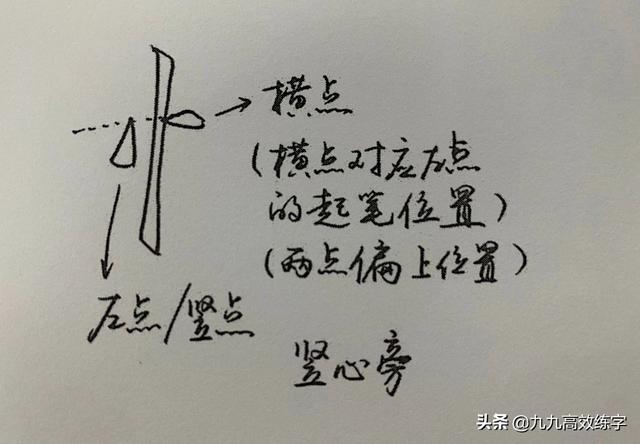 横点
(横点对应左点
的起笔位置)
(两点偏上位置)
左点/竖点
竖心旁
头条 @九九高效练字